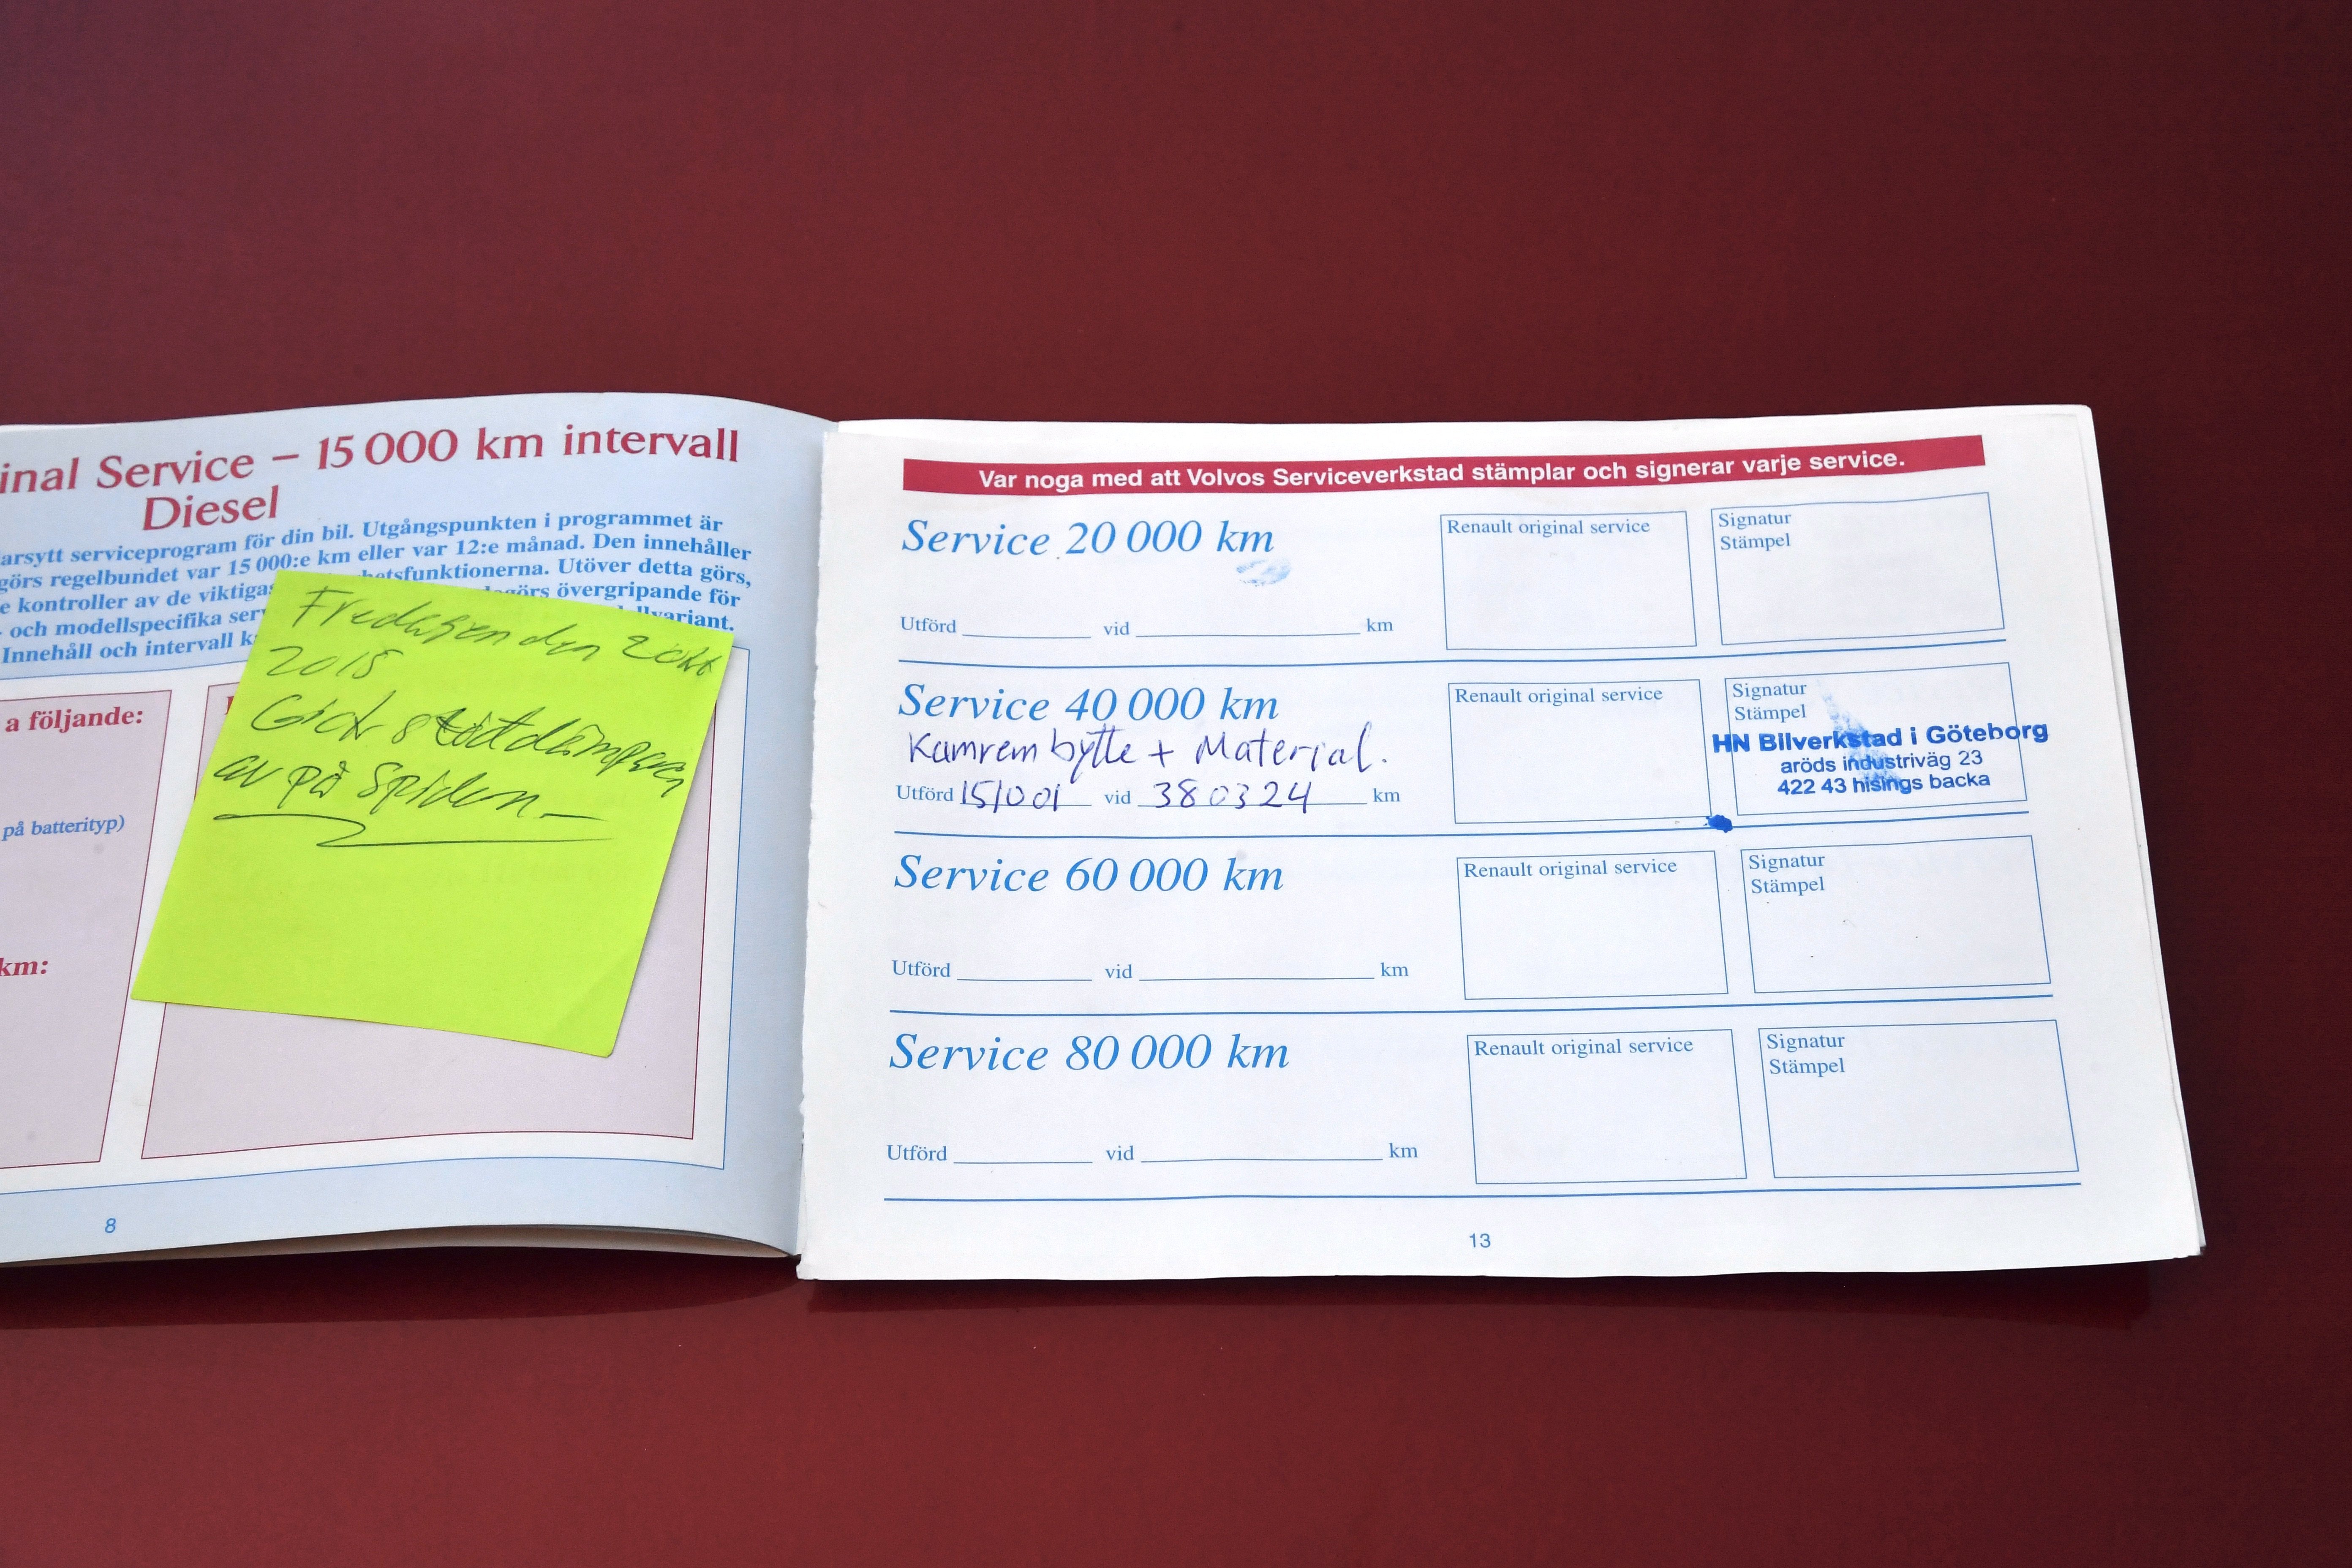 inal Service – 15 000 km intervall
Diesel
arsytt serviceprogram för din bil. Utgångspunkten i programmet är
görs regelbundet var 15 000:e km eller var 12:e månad. Den innehåller
e kontroller av de viktigas hetsfunktionerna. Utöver detta görs,
och modellspecifika ser görs övergripande för
Innehåll och intervall k llvariant.
a följande:
på batterityp)
km:
8
den 2 okt
2015
Gick stötdämparen
av på Spidern.
Var noga med att Volvos Serviceverkstad stämplar och signerar varje service.
Service 20 000 km
Utförd vid km
Renault original service
Signatur
Stämpel
Service 40 000 km
Kamrem bytte + Material.
Utförd 151001 vid 380324 km
Renault original service
Signatur
Stämpel
HN Bilverkstad i Göteborg
aröds industriväg 23
422 43 hisings backa
Service 60 000 km
Utförd vid km
Renault original service
Signatur
Stämpel
Service 80 000 km
Utförd vid km
Renault original service
Signatur
Stämpel
13